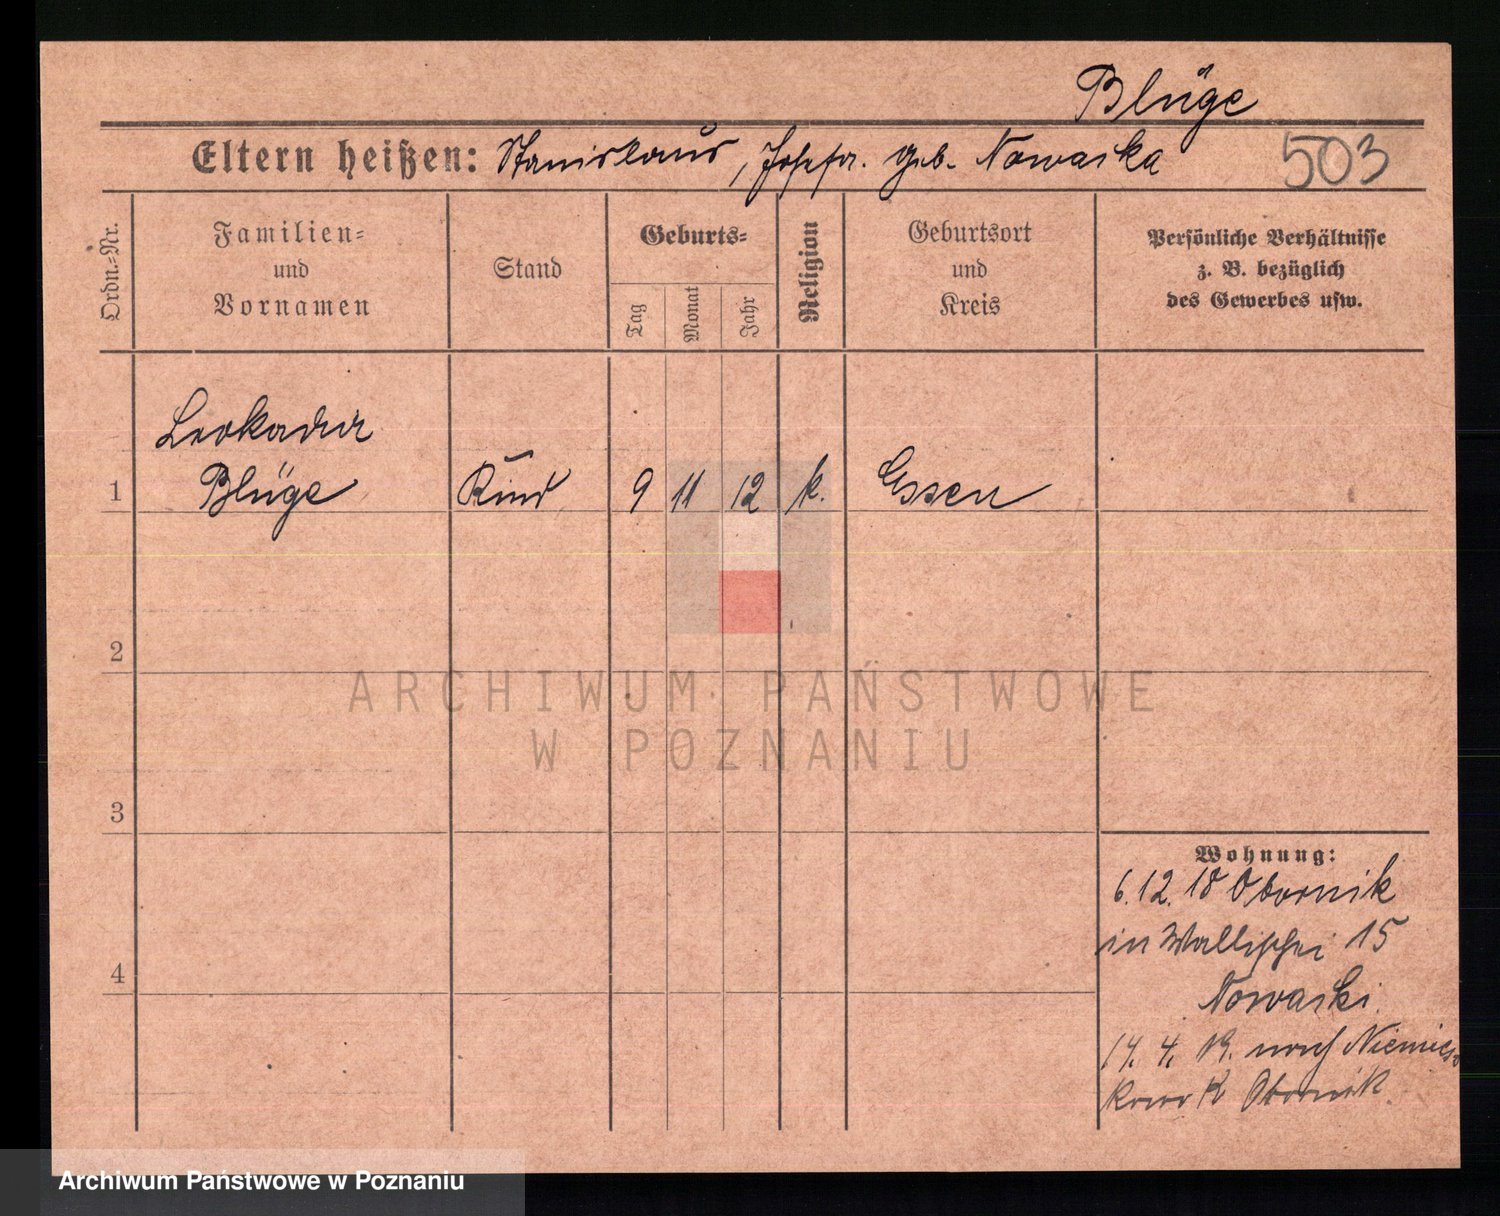 Blüge
Eltern heißen: Stanislaus, Josefa. geb. Nowacka
503
Ordn.-Nr.
Familien-
und
Vornamen
Stand
Geburts-
Tag
Monat
Jahr
Religion
Geburtsort
und
Kreis
Persönliche Verhältnisse
z. B. bezüglich
des Gewerbes usw.
Leokadia
1 Blüge Kind 9 11 12 k. Essen
2
3
4
Wohnung:
6.12.18 Obornik
in Wallischei 15
Nowacki.
14. 4. 19. nach
K Obornik.
ARCHIWUM PAŃSTWOWE
W POZNANIU
Archiwum Państwowe w Poznaniu